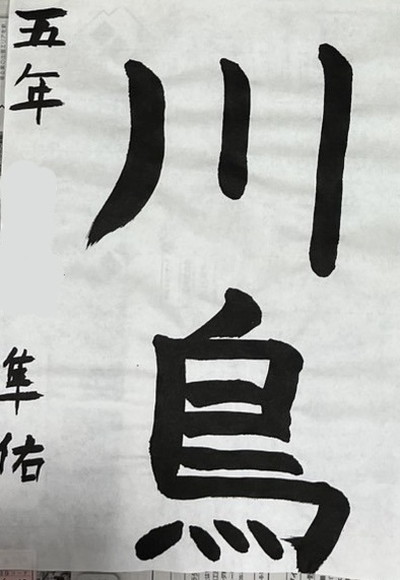 川鳥
五年 隼佑